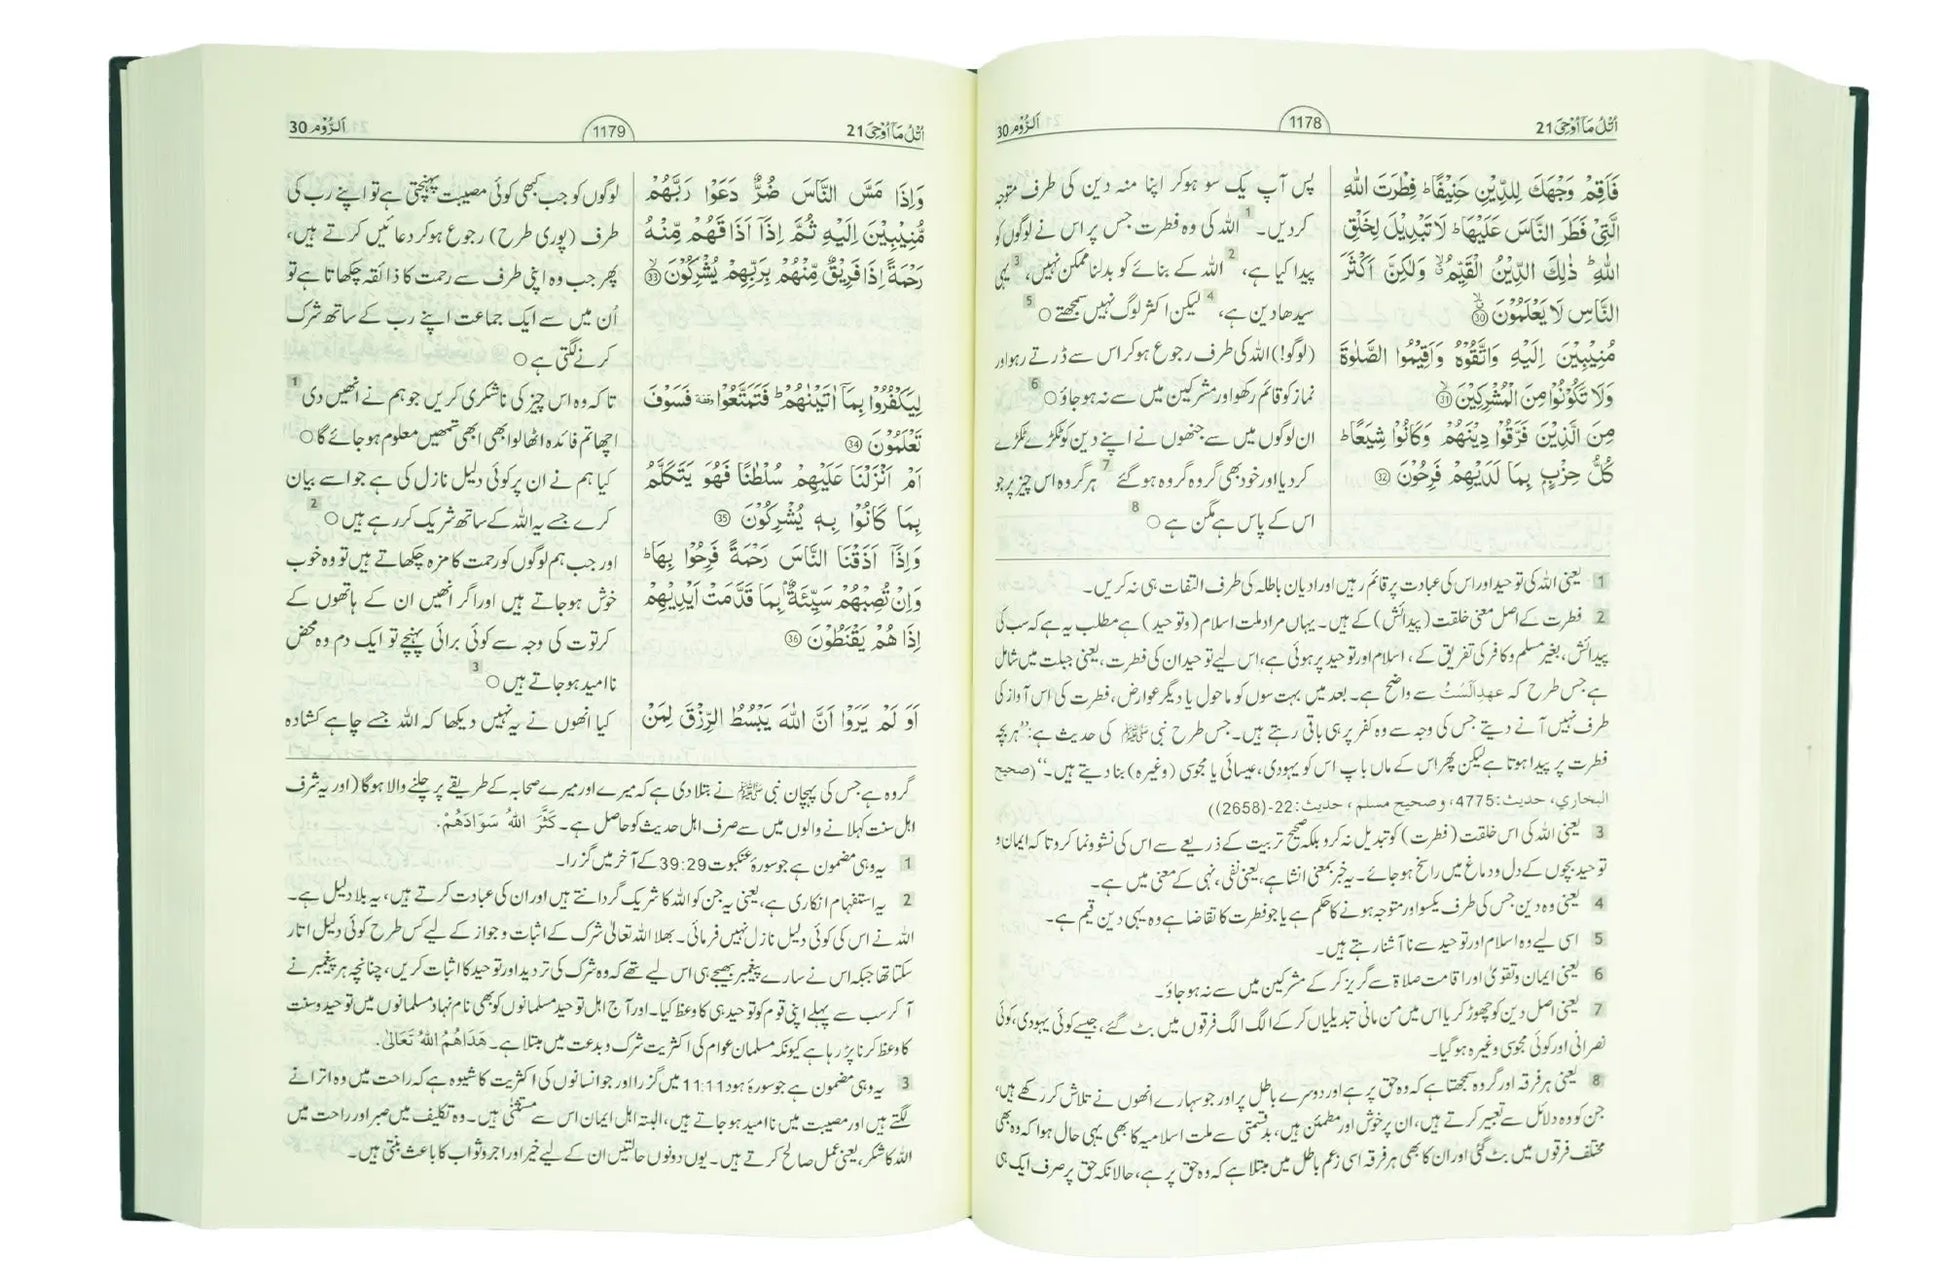 اُتْلُ مَآ اُوْحِیَ 21
1178
اَلرُّوْم 30
فَاَقِمْ وَجْهَكَ لِلدِّيْنِ حَنِيْفًا ؕ فِطْرَتَ اللهِ
الَّتِيْ فَطَرَ النَّاسَ عَلَيْهَا ؕ لَا تَبْدِيْلَ لِخَلْقِ
اللهِ ؕ ذٰلِكَ الدِّيْنُ الْقَيِّمُ ۙ وَلٰكِنَّ اَكْثَرَ
النَّاسِ لَا يَعْلَمُوْنَ ۙ 30
مُنِيْبِيْنَ اِلَيْهِ وَاتَّقُوْهُ وَاَقِيْمُوا الصَّلٰوةَ
وَلَا تَكُوْنُوْا مِنَ الْمُشْرِكِيْنَ ۙ 31
مِنَ الَّذِيْنَ فَرَّقُوْا دِيْنَهُمْ وَكَانُوْا شِيَعًا ؕ
كُلُّ حِزْبٍۭ بِمَا لَدَيْهِمْ فَرِحُوْنَ 32
پس آپ یک سو ہوکر اپنا منہ دین کی طرف متوجہ
کردیں۔ 1 اللہ کی وہ فطرت جس پر اس نے لوگوں کو
پیدا کیا ہے، 2 اللہ کے بنائے کو بدلنا ممکن نہیں، 3 یہی
سیدھا دین ہے، 4 لیکن اکثر لوگ نہیں سمجھتے ○ 5
(لوگو!) اللہ کی طرف رجوع ہوکر اس سے ڈرتے رہو اور
نماز کو قائم رکھو اور مشرکین میں سے نہ ہو جاؤ ○ 6
ان لوگوں میں سے جنھوں نے اپنے دین کو ٹکڑے ٹکڑے
کر دیا اور خود بھی گروہ گروہ ہو گئے 7 ہر گروہ اس چیز پر جو
اس کے پاس ہے مگن ہے ○ 8
1 یعنی اللہ کی توحید اور اس کی عبادت پر قائم رہیں اور ادیان باطلہ کی طرف التفات ہی نہ کریں۔
2 فطرت کے اصل معنی خلقت (پیدائش) کے ہیں۔ یہاں مراد ملت اسلام (و توحید) ہے مطلب یہ ہے کہ سب کی
پیدائش، بغیر مسلم و کافر کی تفریق کے، اسلام اور توحید پر ہوئی ہے، اس لیے توحید ان کی فطرت، یعنی جبلت میں شامل
ہے جس طرح کہ عہدِ اَلَسْتُ سے واضح ہے۔ بعد میں بہت سوں کو ماحول یا دیگر عوارض، فطرت کی اس آواز کی
طرف نہیں آنے دیتے جس کی وجہ سے وہ کفر پر ہی باقی رہتے ہیں۔ جس طرح نبی ﷺ کی حدیث ہے: ”ہر بچہ
فطرت پر پیدا ہوتا ہے لیکن پھر اس کے ماں باپ اس کو یہودی، عیسائی یا مجوسی (وغیرہ) بنا دیتے ہیں۔“ (صحيح
البخاري، حديث: 4775، و صحيح مسلم، حديث: 22-(2658))
3 یعنی اللہ کی اس خلقت (فطرت) کو تبدیل نہ کرو بلکہ صحیح تربیت کے ذریعے سے اس کی نشوونما کرو تا کہ ایمان و
توحید بچوں کے دل و دماغ میں راسخ ہو جائے۔ یہ خبر بمعنی انشا ہے، یعنی نفی، نہی کے معنی میں ہے۔
4 یعنی وہ دین جس کی طرف یکسو اور متوجہ ہونے کا حکم ہے یا جو فطرت کا تقاضا ہے وہ یہی دین قیم ہے۔
5 اسی لیے وہ اسلام اور توحید سے نا آشنا رہتے ہیں۔
6 یعنی ایمان و تقویٰ اور اقامت صلاۃ سے گریز کر کے مشرکین میں سے نہ ہو جاؤ۔
7 یعنی اصل دین کو چھوڑ کر یا اس میں من مانی تبدیلیاں کر کے الگ الگ فرقوں میں بٹ گئے، جیسے کوئی یہودی، کوئی
نصرانی اور کوئی مجوسی وغیرہ ہو گیا۔
8 یعنی ہر فرقہ اور گروہ سمجھتا ہے کہ وہ حق پر ہے اور دوسرے باطل پر اور جو سہارے انھوں نے تلاش کر رکھے ہیں،
جن کو وہ دلائل سے تعبیر کرتے ہیں، ان پر خوش اور مطمئن ہیں، بدقسمتی سے ملت اسلامیہ کا بھی یہی حال ہوا کہ وہ بھی
مختلف فرقوں میں بٹ گئی اور ان کا بھی ہر فرقہ اسی زعم باطل میں مبتلا ہے کہ وہ حق پر ہے، حالانکہ حق پر صرف ایک ہی
اُتْلُ مَآ اُوْحِیَ 21
1179
اَلرُّوْم 30
وَاِذَا مَسَّ النَّاسَ ضُرٌّ دَعَوْا رَبَّهُمْ
مُّنِيْبِيْنَ اِلَيْهِ ثُمَّ اِذَآ اَذَاقَهُمْ مِّنْهُ
رَحْمَةً اِذَا فَرِيْقٌ مِّنْهُمْ بِرَبِّهِمْ يُشْرِكُوْنَ ۙ 33
لِيَكْفُرُوْا بِمَآ اٰتَيْنٰهُمْ ؕ فَتَمَتَّعُوْا وقفة فَسَوْفَ
تَعْلَمُوْنَ 34
اَمْ اَنْزَلْنَا عَلَيْهِمْ سُلْطٰنًا فَهُوَ يَتَكَلَّمُ
بِمَا كَانُوْا بِهٖ يُشْرِكُوْنَ 35
وَاِذَآ اَذَقْنَا النَّاسَ رَحْمَةً فَرِحُوْا بِهَا ؕ
وَاِنْ تُصِبْهُمْ سَيِّئَةٌۢ بِمَا قَدَّمَتْ اَيْدِيْهِمْ
اِذَا هُمْ يَقْنَطُوْنَ 36
اَوَ لَمْ يَرَوْا اَنَّ اللهَ يَبْسُطُ الرِّزْقَ لِمَنْ
لوگوں کو جب کبھی کوئی مصیبت پہنچتی ہے تو اپنے رب کی
طرف (پوری طرح) رجوع ہوکر دعائیں کرتے ہیں،
پھر جب وہ اپنی طرف سے رحمت کا ذائقہ چکھاتا ہے تو
اُن میں سے ایک جماعت اپنے رب کے ساتھ شرک
کرنے لگتی ہے ○
تا کہ وہ اس چیز کی ناشکری کریں جو ہم نے انھیں دی 1
اچھا تم فائدہ اٹھا لو ابھی ابھی تمھیں معلوم ہو جائے گا ○
کیا ہم نے ان پر کوئی دلیل نازل کی ہے جو اسے بیان
کرے جسے یہ اللہ کے ساتھ شریک کر رہے ہیں ○ 2
اور جب ہم لوگوں کو رحمت کا مزہ چکھاتے ہیں تو وہ خوب
خوش ہو جاتے ہیں اور اگر انھیں ان کے ہاتھوں کے
کرتوت کی وجہ سے کوئی برائی پہنچے تو ایک دم وہ محض
ناامید ہو جاتے ہیں ○ 3
کیا انھوں نے یہ نہیں دیکھا کہ اللہ جسے چاہے کشادہ
گروہ ہے جس کی پہچان نبی ﷺ نے بتلا دی ہے کہ میرے اور میرے صحابہ کے طریقے پر چلنے والا ہوگا (اور یہ شرف
اہل سنت کہلانے والوں میں سے صرف اہل حدیث کو حاصل ہے۔ كَثَّرَ اللهُ سَوَادَهُمْ.
1 یہ وہی مضمون ہے جو سورۂ عنکبوت 39:29 کے آخر میں گزرا۔
2 یہ استفہام انکاری ہے، یعنی یہ جن کو اللہ کا شریک گردانتے ہیں اور ان کی عبادت کرتے ہیں، یہ بلا دلیل ہے۔
اللہ نے اس کی کوئی دلیل نازل نہیں فرمائی۔ بھلا اللہ تعالیٰ شرک کے اثبات و جواز کے لیے کس طرح کوئی دلیل اتار
سکتا تھا جبکہ اس نے سارے پیغمبر بھیجے ہی اس لیے تھے کہ وہ شرک کی تردید اور توحید کا اثبات کریں، چنانچہ ہر پیغمبر نے
آ کر سب سے پہلے اپنی قوم کو توحید ہی کا وعظ کیا۔ اور آج اہل توحید مسلمانوں کو بھی نام نہاد مسلمانوں میں توحید و سنت
کا وعظ کرنا پڑ رہا ہے کیونکہ مسلمان عوام کی اکثریت شرک و بدعت میں مبتلا ہے۔ هَدَاهُمُ اللهُ تَعَالٰى.
3 یہ وہی مضمون ہے جو سورۂ ہود 11:11 میں گزرا اور جو انسانوں کی اکثریت کا شیوہ ہے کہ راحت میں وہ اترانے
لگتے ہیں اور مصیبت میں ناامید ہو جاتے ہیں، البتہ اہل ایمان اس سے مستثنیٰ ہیں۔ وہ تکلیف میں صبر اور راحت میں
اللہ کا شکر، یعنی عمل صالح کرتے ہیں۔ یوں دونوں حالتیں ان کے لیے خیر اور اجر و ثواب کا باعث بنتی ہیں۔